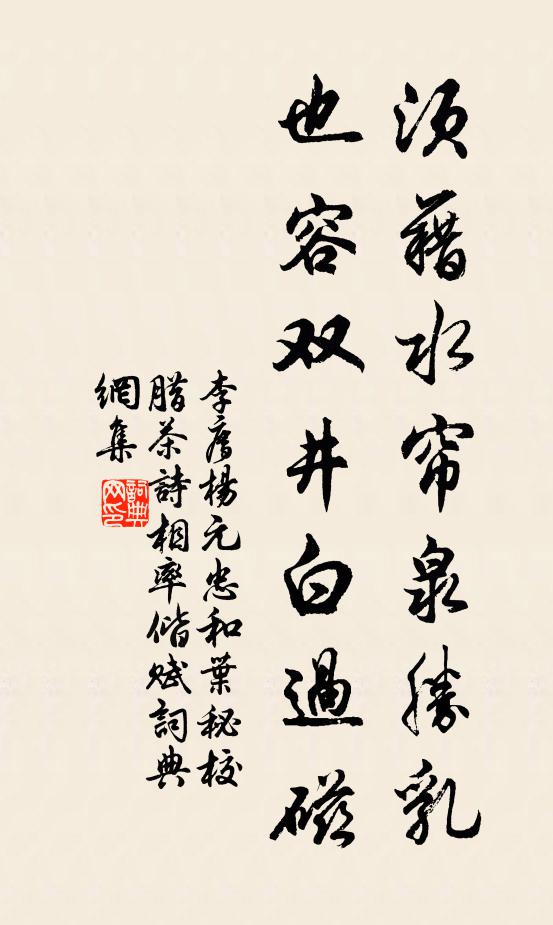 须藉水帘泉勝乳
也容双井白過磁
李楊元忠和葉秘校
腊茶詩相率偕賦詞典
網集
詞典网印